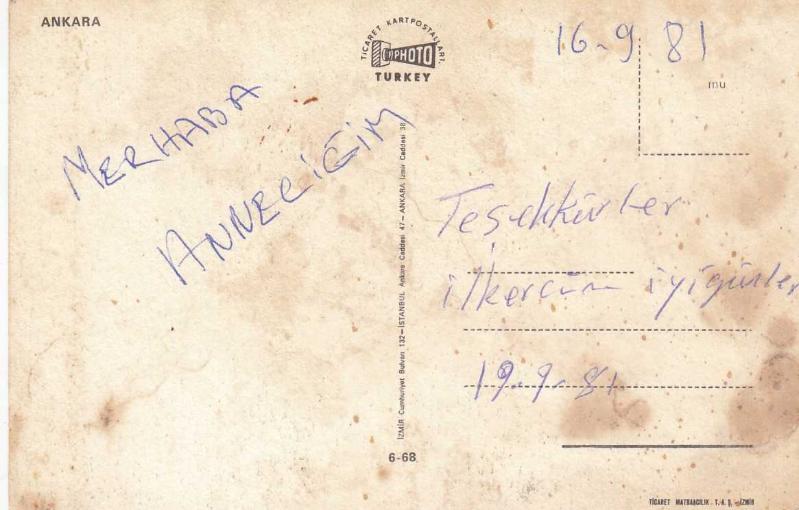 ANKARA
TİCARET KARTPOSTALLARI.
PHOTO
TURKEY
16-9 81
mu
MERHABA
ANNECİĞİM
Teşekkürler
ilkercim iyigünler
19-9-81
İZMİR Cumhuriyet Bulvarı 132—İSTANBUL Ankara Caddesi 47—ANKARA İzmir Caddesi 38
6-68
TİCARET MATBAACILIK T.A.Ş. -İZMİR